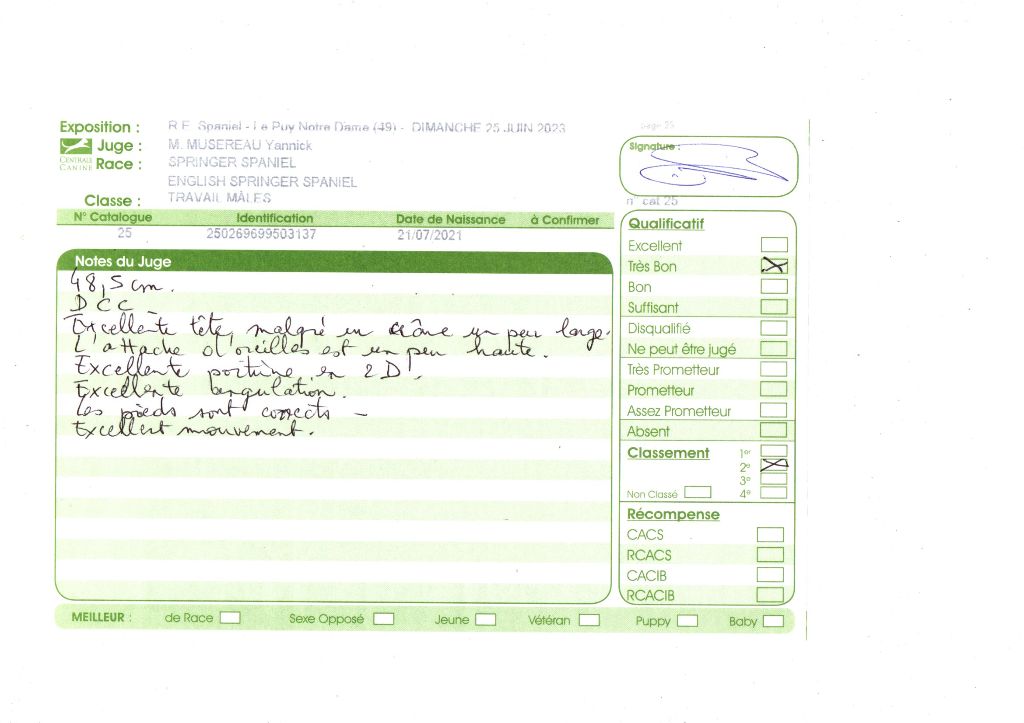 Exposition : R.E. Spaniel - Le Puy Notre Dame (49) - DIMANCHE 25 JUIN 2023
page 25
CENTRALE CANINE
Juge : M. MUSEREAU Yannick
Race : SPRINGER SPANIEL
ENGLISH SPRINGER SPANIEL
Classe : TRAVAIL MÂLES
Signature :
n° cat 25
N° Catalogue Identification Date de Naissance à Confirmer
25 250269699503137 21/07/2021
Notes du Juge
48,5 cm.
D C C _
Excellente tête, malgré un crâne un peu large.
L'attache d'oreilles est un peu haute.
Excellente poitrine en 2D!
Excellente angulation.
Les pieds sont corrects -
Excellent mouvement.
Qualificatif
Excellent
Très Bon
Bon
Suffisant
Disqualifié
Ne peut être jugé
Très Prometteur
Prometteur
Assez Prometteur
Absent
Classement 1er
2e
3e
Non Classé 4e
Récompense
CACS
RCACS
CACIB
RCACIB
MEILLEUR : de Race Sexe Opposé Jeune Vétéran Puppy Baby